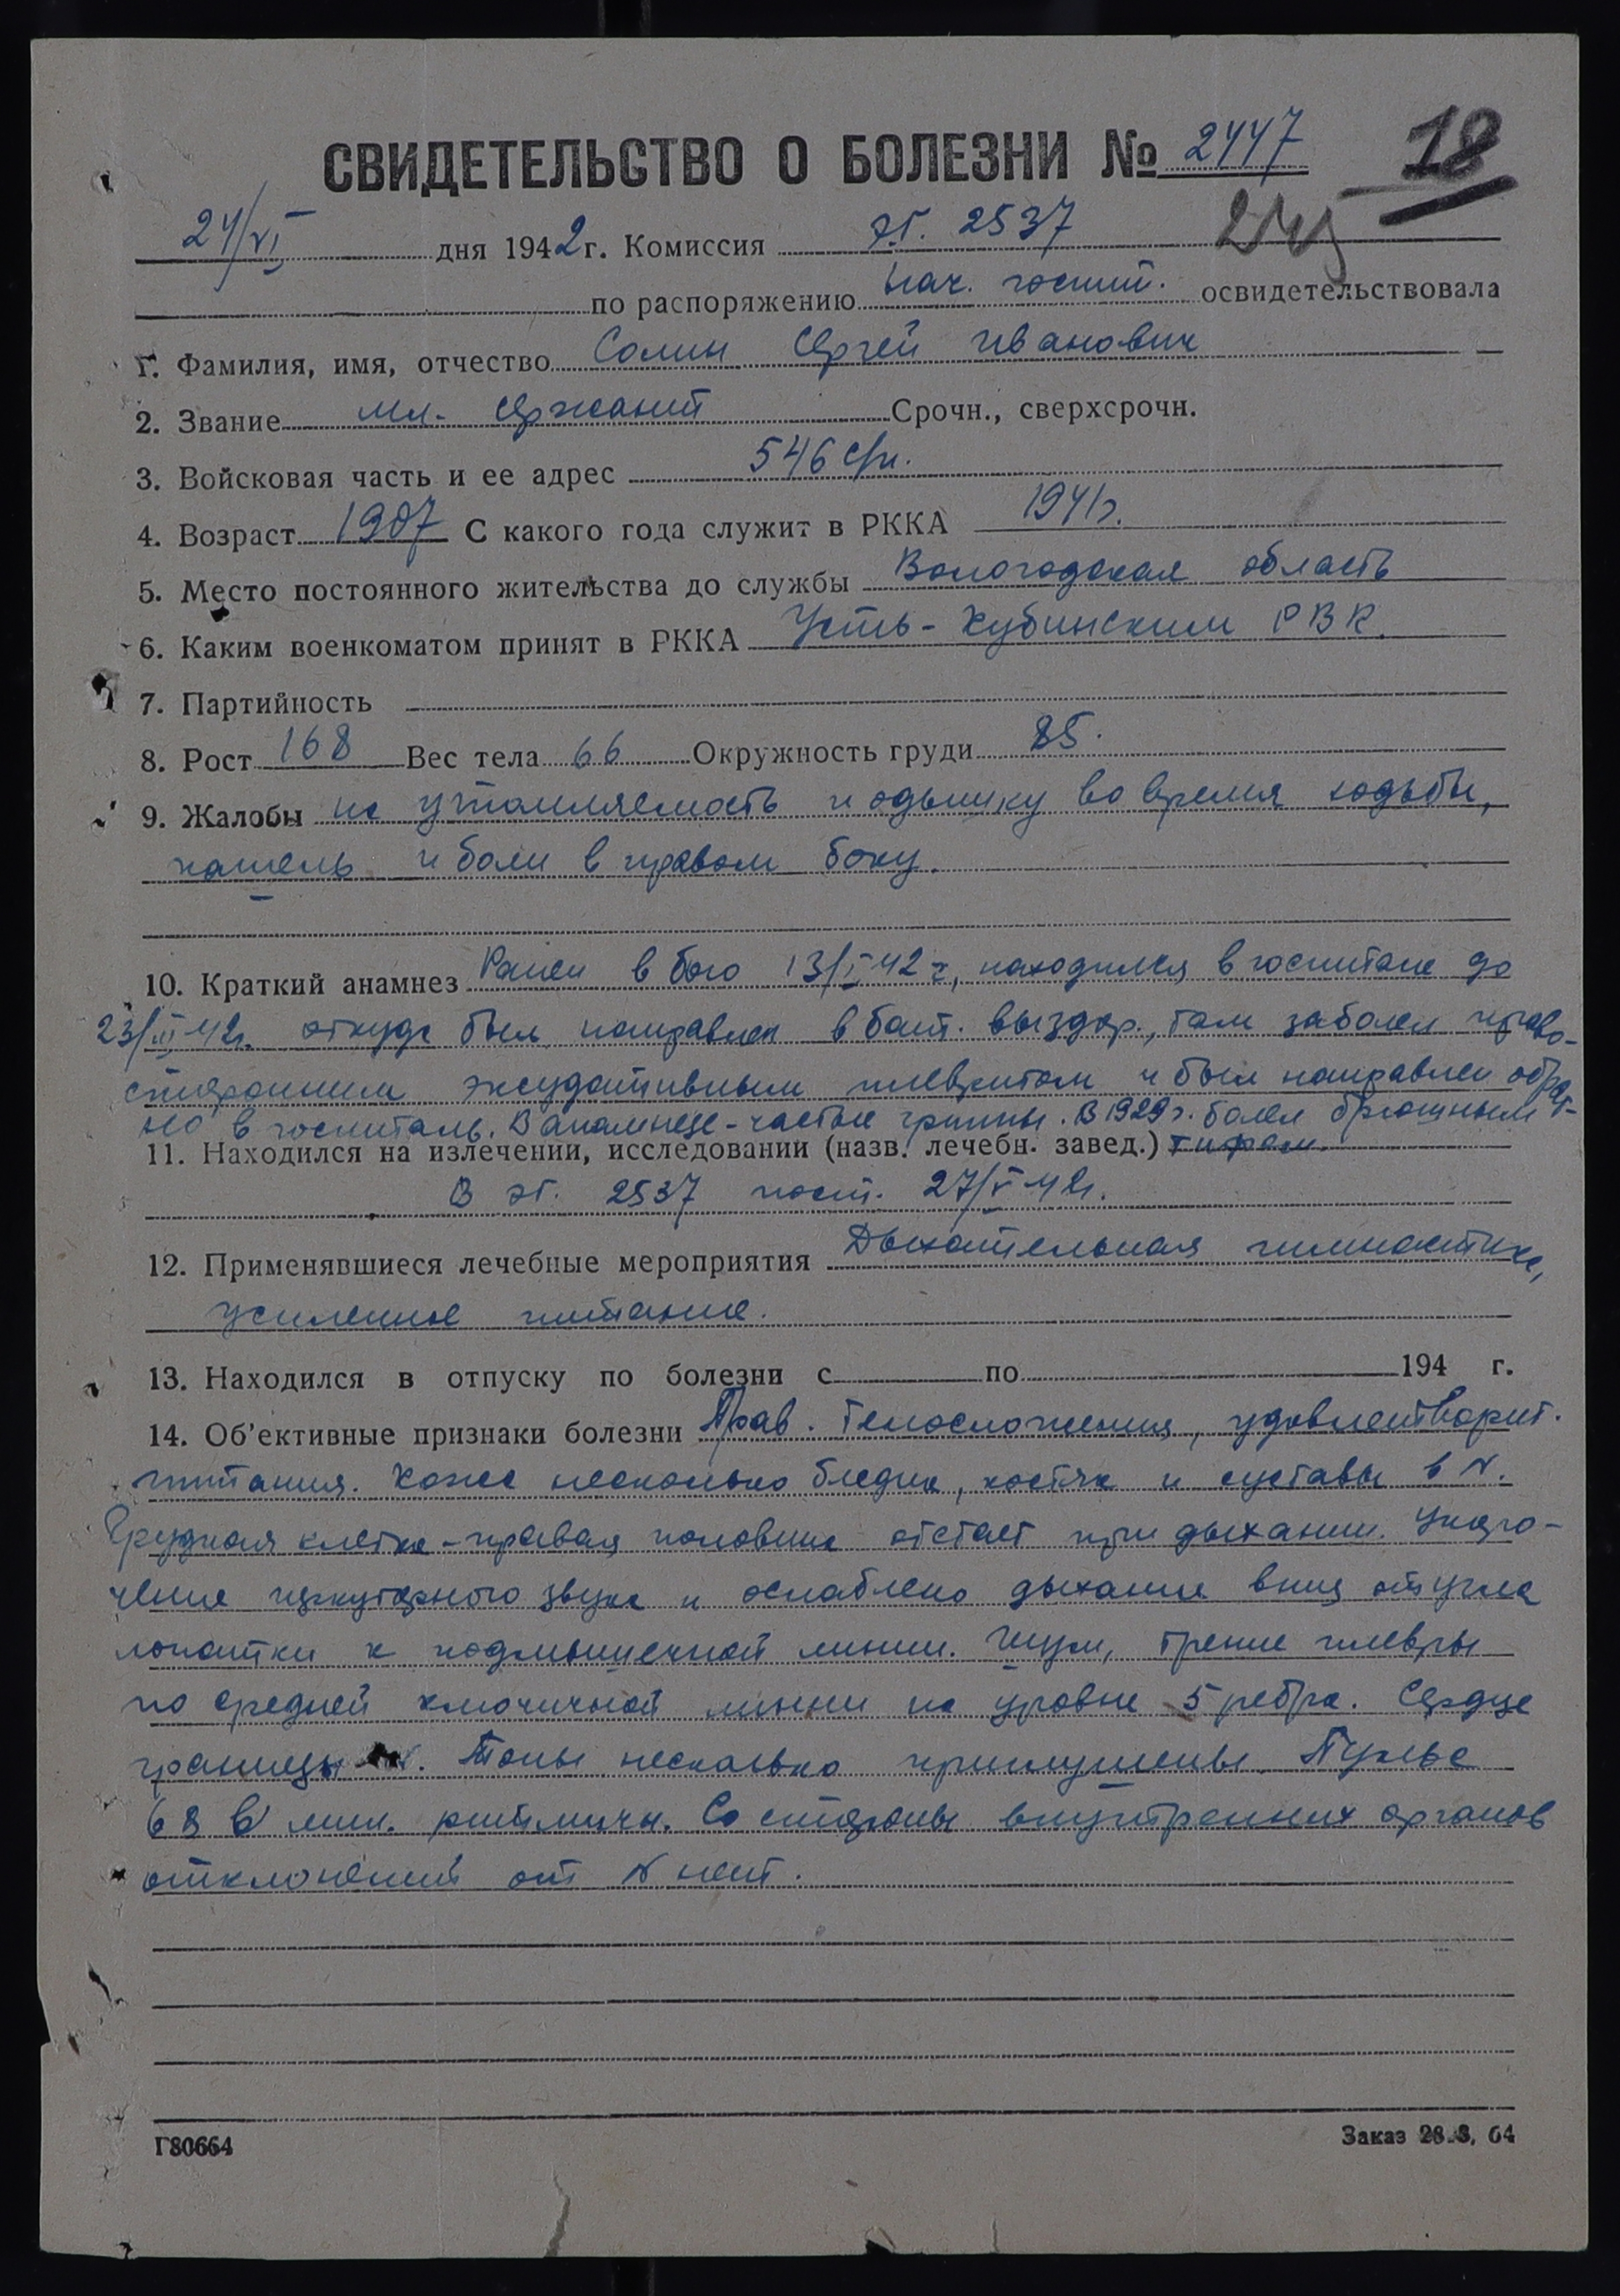 СВИДЕТЕЛЬСТВО О БОЛЕЗНИ № 2447
18
24/VI дня 1942 г. Комиссия э.г. 2537
по распоряжению нач. госпит. освидетельствовала
1. Фамилия, имя, отчество Солин Сергей Иванович
2. Звание мл. сержант Срочн., сверхсрочн.
3. Войсковая часть и ее адрес 546 с/п.
4. Возраст 1907 С какого года служит в РККА 1941 г.
5. Место постоянного жительства до службы Вологодская область
6. Каким военкоматом принят в РККА Усть-Кубинским РВК.
7. Партийность
8. Рост 168 Вес тела 66 Окружность груди 85.
9. Жалобы на утомляемость и одышку во время ходьбы,
кашель и боли в правом боку.
10. Краткий анамнез Ранен в бою 13/I 42 г, находился в госпитале до
23/III 42г. откуда был направлен в бат. выздор., там заболел право-
сторонним эксудативным плевритом и был направлен обрат-
но в госпиталь. В анамнезе - частые гриппы. В 1929 г. болел брюшным
11. Находился на излечении, исследовании (назв. лечебн. завед.) тифом.
В эг. 2537 пост. 27/V 42г.
12. Применявшиеся лечебные мероприятия Дыхательная гимнастика,
усиленное питание.
13. Находился в отпуску по болезни с по 194 г.
14. Об'ективные признаки болезни Прав. телосложения, удовлетворит.
питания. Кожа несколько бледна, костяк и суставы в N.
Грудная клетка - правая половина отстает при дыхании. Укоро-
чение перкуторного звука и ослаблено дыхание вниз от угла
лопатки к подмышечной линии. Шум, трение плевры
по средней ключичной линии на уровне 5 ребра. Сердце
границы N. Тоны несколько приглушены. Пульс
68 в мин. ритмичн. Со стороны внутренних органов
отклонений от N нет.
Г80664
Заказ